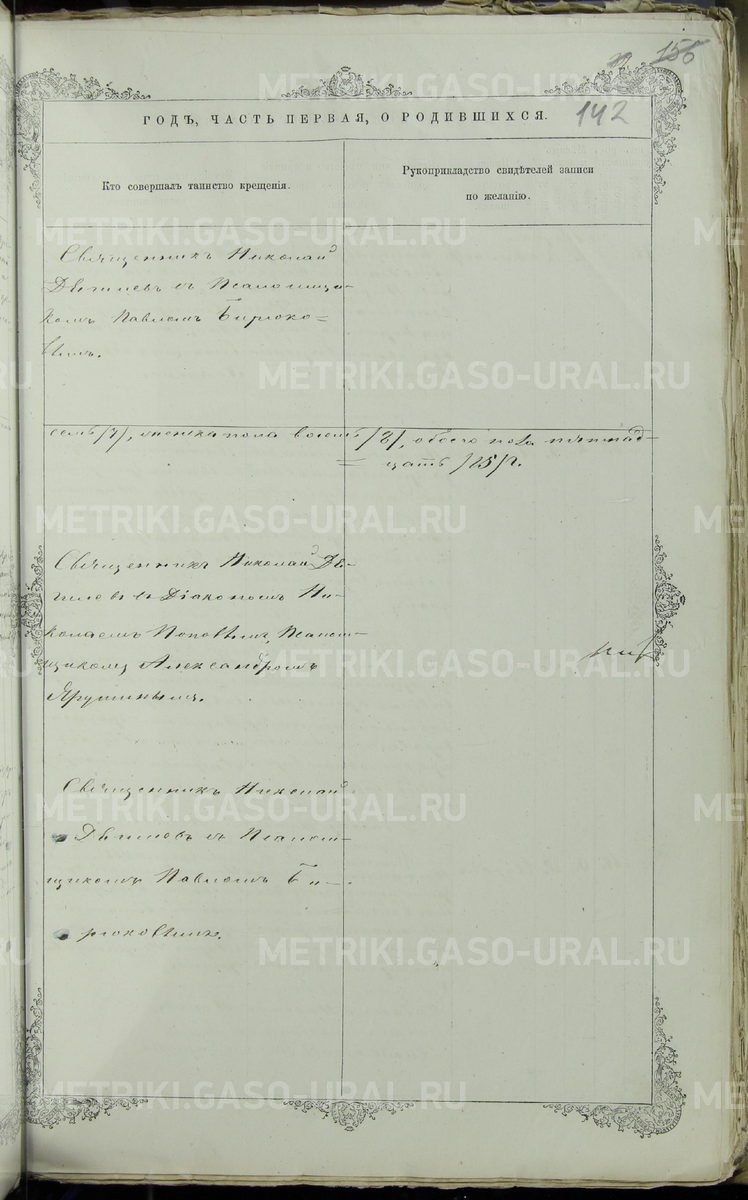 155
142
ГОДЪ, ЧАСТЬ ПЕРВАЯ, О РОДИВШИХСЯ.
Кто совершалъ таинство крещенія.
Рукоприкладство свидѣтелей записи
по желанію.
Священникъ Николай
съ Псаломщи-
комъ Павломъ Бирюко-
вымъ.
семь /7/, женска пола восемь /8/, обоего пола пятнад-
цать /15/.
Священникъ Николай
съ Діакономъ Ни-
колаемъ Поповымъ, Псалом-
щикомъ Александромъ
Ярушинымъ.
Священникъ Николай
съ Псалом-
щикомъ Павломъ Би-
рюковымъ.
METRIKI.GASO-URAL.RU